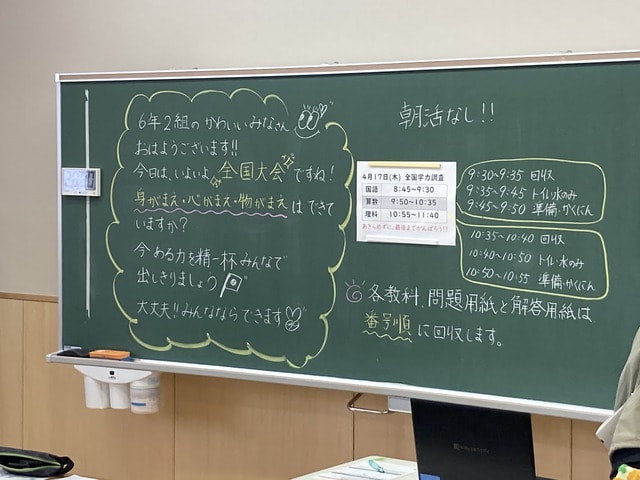 6年2組のかわいいみなさん
おはようございます!!
今日は、いよいよ全国大会ですね!
身がまえ・心がまえ・物がまえはできて
いますか?
今ある力を精一杯みんなで
出しきりましょう
大丈夫!!みんなならできます
朝活なし!!
4月17日(木) 全国学力調査
国語 8:45~9:30
算数 9:50~10:35
理科 10:55~11:40
あきらめずに、最後までがんばろう!!
9:30~9:35 回収
9:35~9:45 トイレ・水のみ
9:45~9:50 準備・かくにん
10:35~10:40 回収
10:40~10:50 トイレ・水のみ
10:50~10:55 準備・かくにん
各教科、問題用紙と解答用紙は
番号順に回収します。